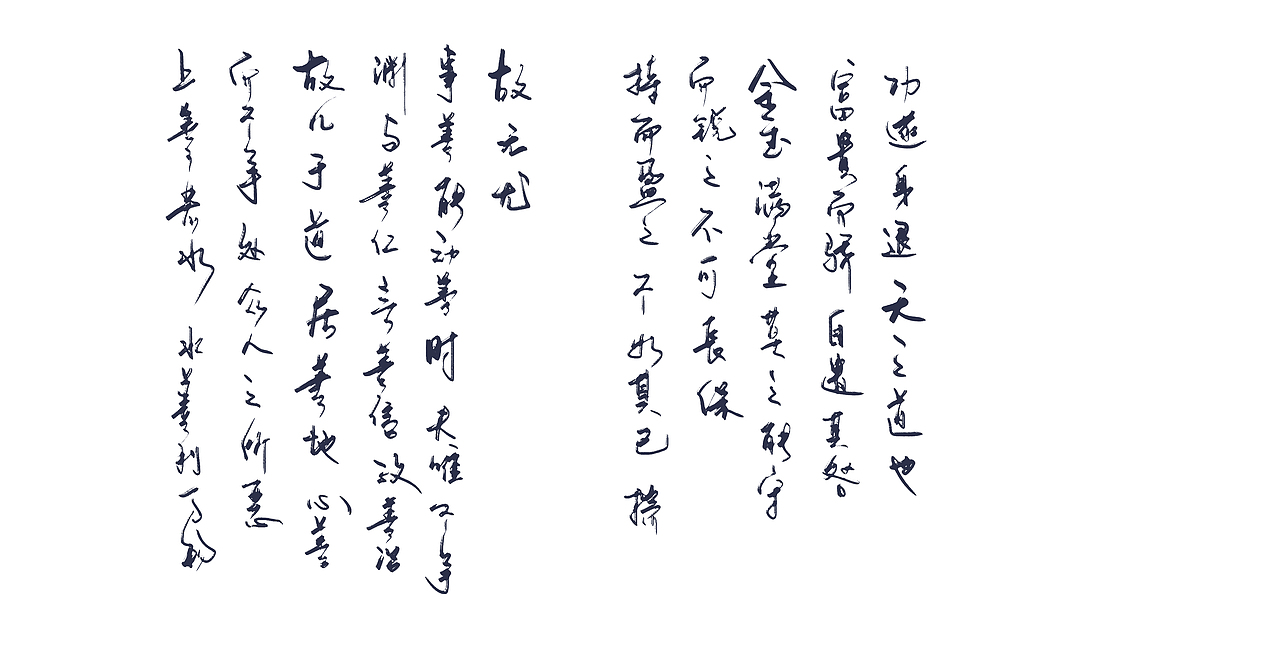 上善若水水善利万物
而不争处众人之所恶
故几于道居善地心善
渊与善仁言善信政善治
事善能动善时夫唯不争
故无尤
持而盈之不如其已揣
而锐之不可長保
金玉满堂莫之能守
富貴而骄自遺其咎
功遂身退天之道也